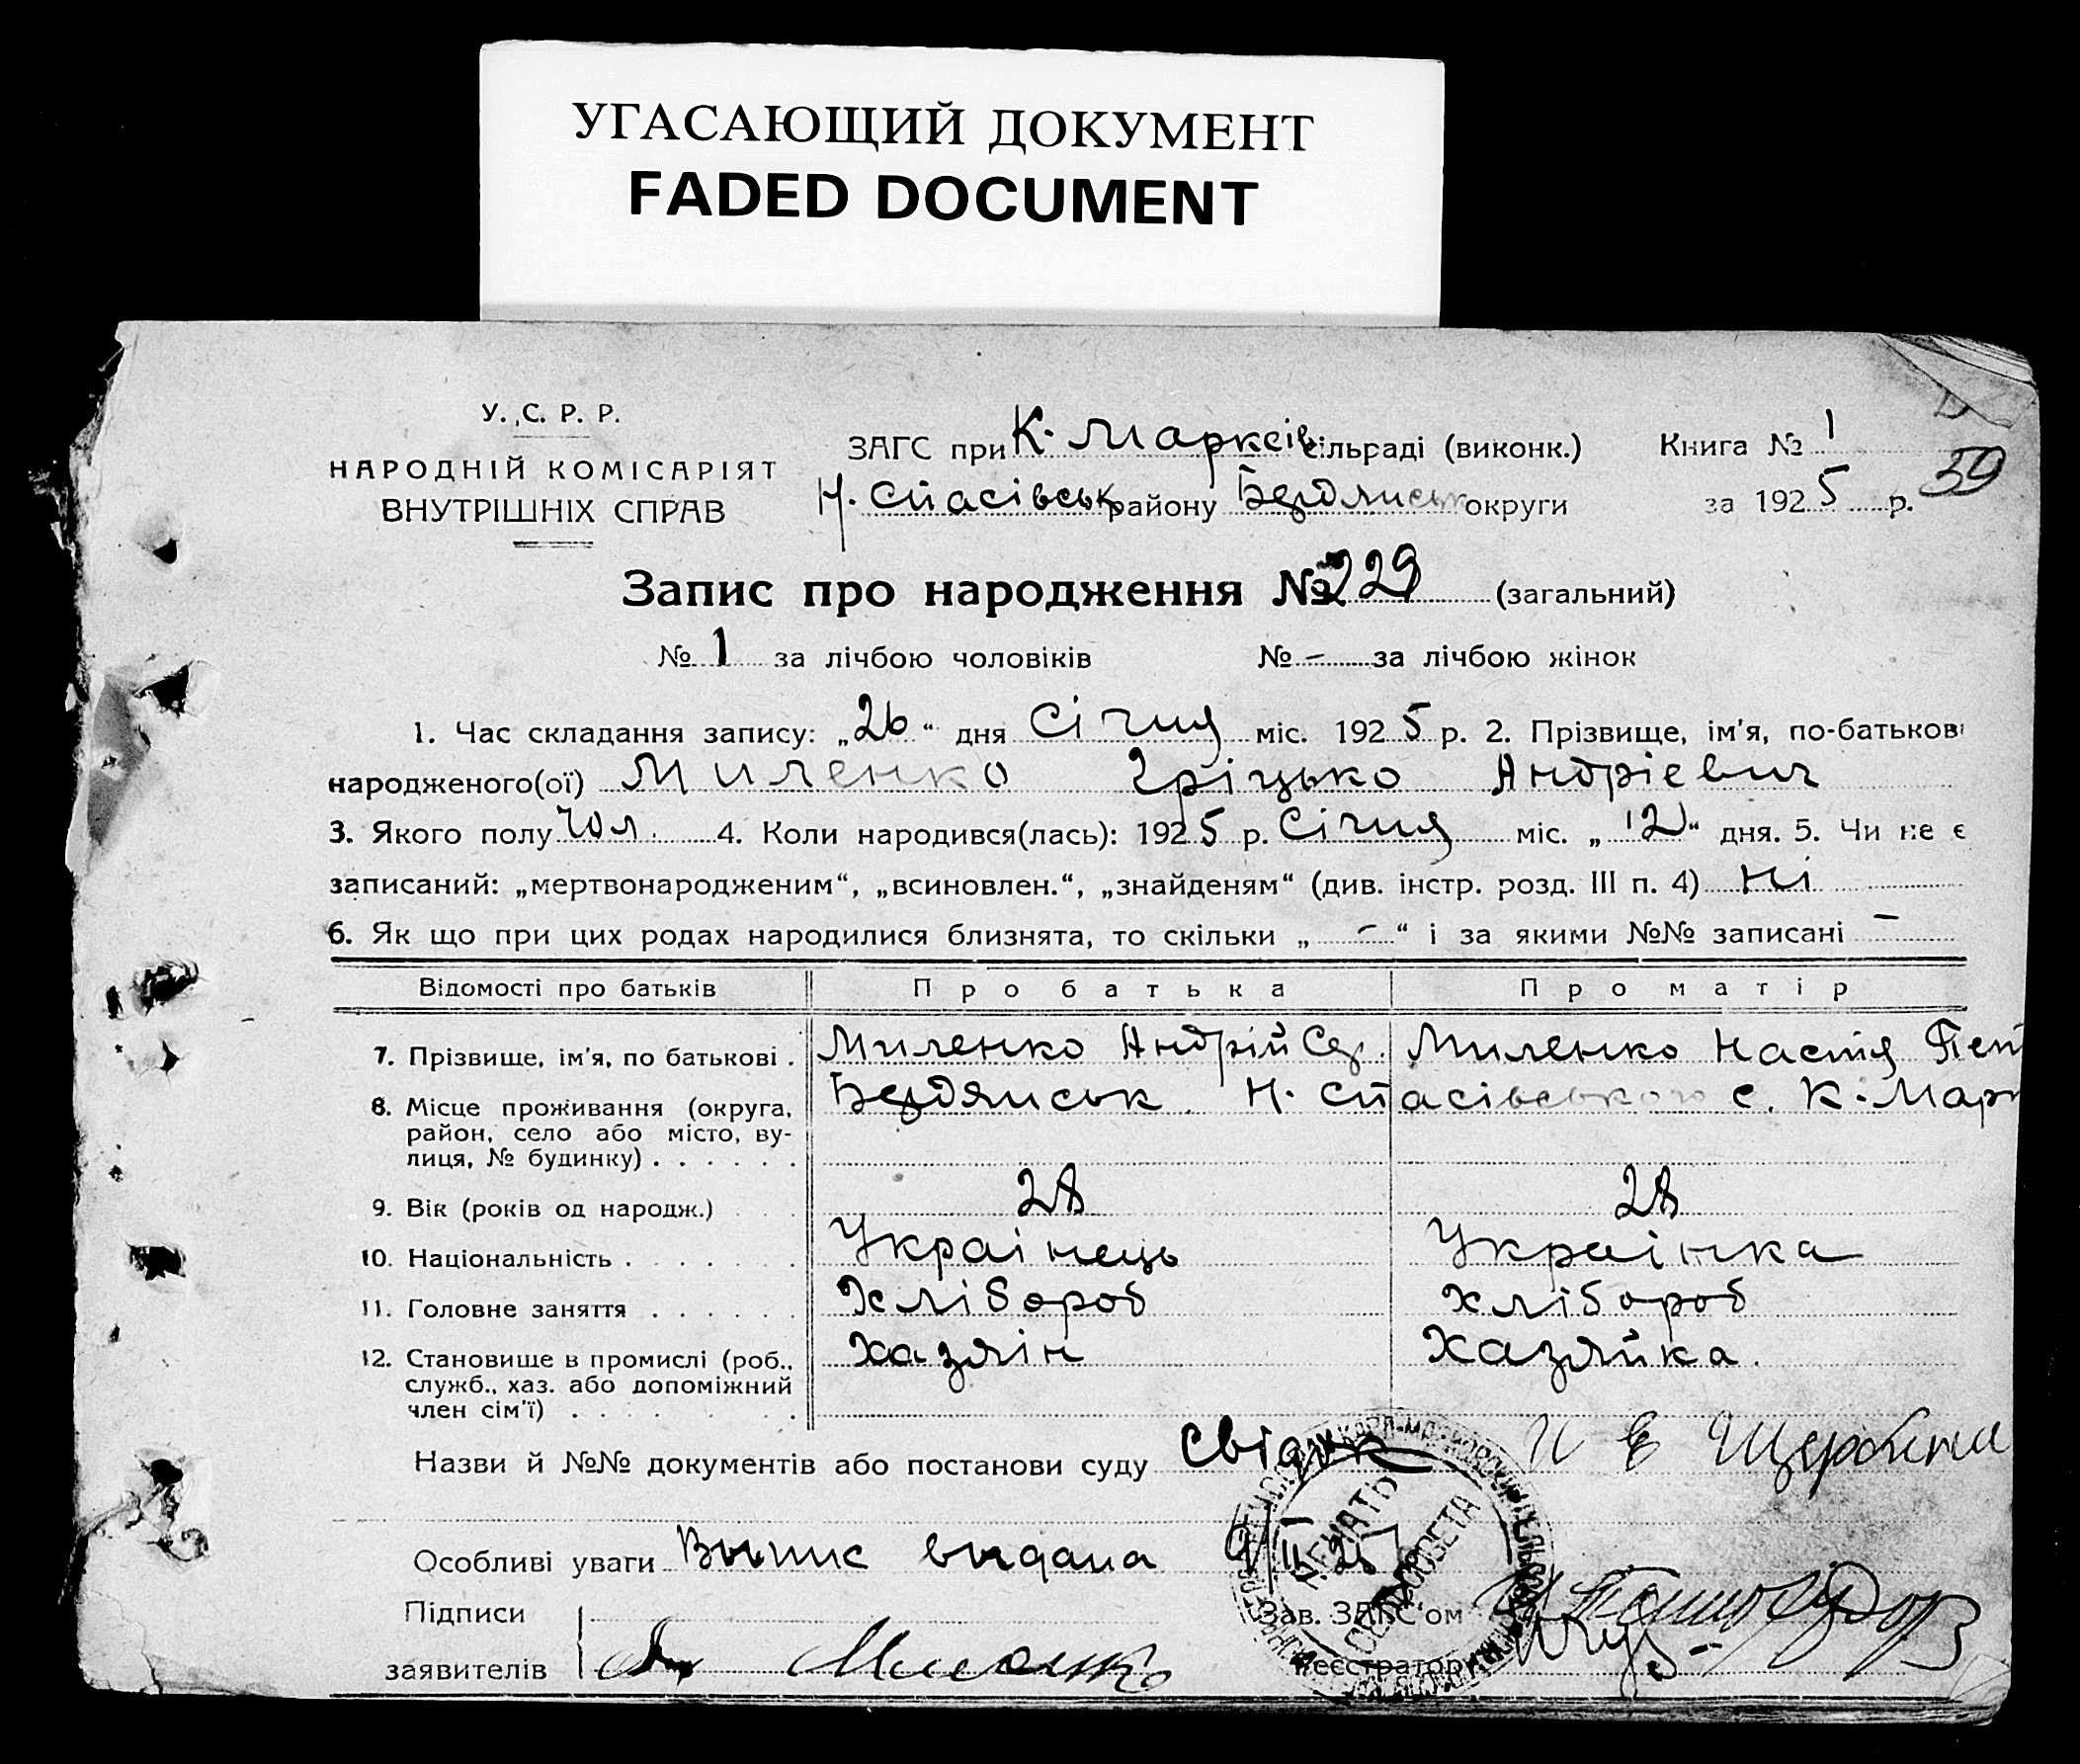 УГАСАЮЩИЙ ДОКУМЕНТ
FADED DOCUMENT
У. С. Р. Р.
НАРОДНІЙ КОМІСАРІЯТ
ВНУТРІШНІХ СПРАВ
ЗАГС при К. Марксів сільраді (виконк.)
Н. Спасівськ району Бердянськ округи
Книга № 1
за 1925 р.
59
Запис про народження № 229 (загальний)
№ 1 за лічбою чоловіків № - за лічбою жінок
1. Час складання запису: „26“ дня Січня міс. 1925 р. 2. Прізвище, ім'я, по-батькові
народженого(ої) Миленко Гріцько Андрієвич
3. Якого полу чол. 4. Коли народився(лась): 1925 р. Січня міс. „12“ дня. 5. Чи не є
записаний: „мертвонародженим“, „всиновлен.“, „знайденям“ (див. інстр. розд. III п. 4) ні
6. Як що при цих родах народилися близнята, то скільки „-“ і за якими №№ записані -
Відомості про батьків Про батька Про матір
7. Прізвище, ім'я, по батькові . Миленко Андрій Сер. Миленко Настя Пет
8. Місце проживання (округа, Бердянськ Н. Спасівського с. К. Марк
район, село або місто, ву-
лиця, № будинку) . . . . . .
9. Вік (років од народж.) 28 28
10. Національність . . . . . . . Українець Українка
11. Головне заняття . . . . . . Хлібороб хлібороб
12. Становище в промислі (роб., хазяін Хазяйка.
служб., хаз. або допоміжний
член сім'ї) . . . . . . .
Назви й №№ документів або постанови суду Свідок И Е Щербина
Особливі уваги Выпис выдана 9/II 25
Підписи
заявителів Миленко
Зав. ЗАГС'ом
Реєстратор
ПЕЧАТЬ
СЕЛЬСОВЕТА